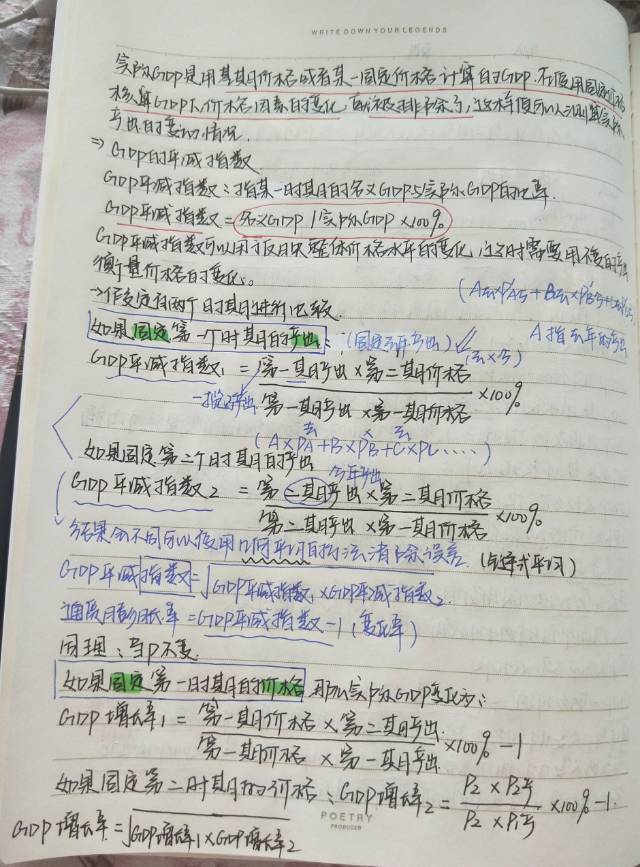 WRITE DOWN YOUR LEGENDS
实际GDP是用基期价格或者某一固定价格计算的GDP.不仅用固定价格
核算GDP,价格因素的变化,就被排除了,这样便可以观察实际
产出的变动情况.
⇒ GDP的平减指数
GDP平减指数:指某一时期的名义GDP与实际GDP的比率.
GDP平减指数=名义GDP/实际GDP×100%
GDP平减指数可以用于反映整体价格水平的变化,这时需要用不变的产出
衡量价格的变化。
→假定有两个时期进行比较.
A指去年的产出
如果固定第一个时期的产出: (固定去年产出) (去×今)
GDP平减指数1 = 第一期产出×第二期价格 / 第一期产出×第一期价格 ×100%
(A×PA+B×PB+C×PC....)
如果固定第二个时期的产出 今年产出
GDP平减指数2 = 第二期产出×第二期价格 / 第二期产出×第一期价格 ×100%
结果会不同可以使用几何平均的方法消除误差. (链式平均)
GDP平减指数=√GDP平减指数1×GDP平减指数2.
通货膨胀率=GDP平减指数-1 (变化率)
同理:当P不变.
如果固定第一时期的价格 那么实际GDP变化为:
GDP增长率1 = 第一期价格×第二期产出 / 第一期价格×第一期产出 ×100%-1
如果固定第二时期的价格:GDP增长率2 = P2×P2产 / P2×P1产 ×100%-1.
GDP增长率=√GDP增长率1×GDP增长率2
POETRY
PRODUCER